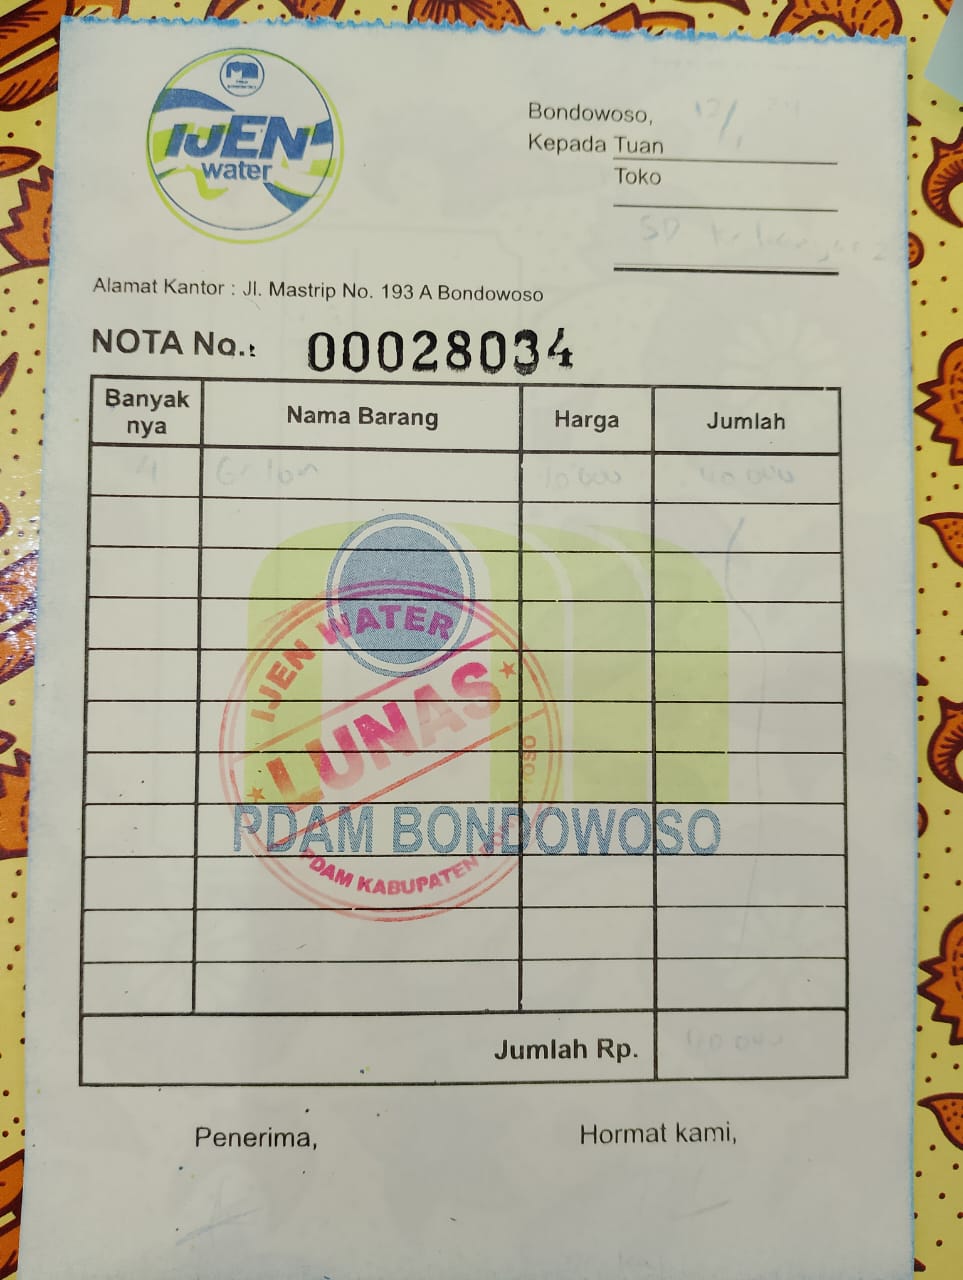 IJEN
water
Bondowoso, 12/1 24
Kepada Tuan
Toko
SD
Alamat Kantor : Jl. Mastrip No. 193 A Bondowoso
NOTA No.: 00028034
Banyak nya Nama Barang Harga Jumlah
4 Galon 10 000 40 000
IJEN WATER
LUNAS
PDAM KABUPATEN BONDOWOSO
PDAM BONDOWOSO
Jumlah Rp. 40 000
Penerima, Hormat kami,